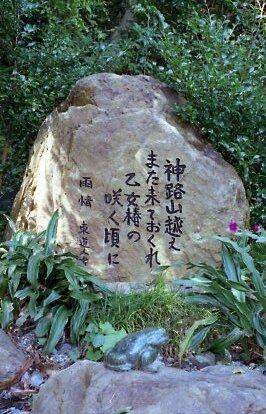 神路山越え
また来ておくれ
乙女椿の
咲く頃に
雨情